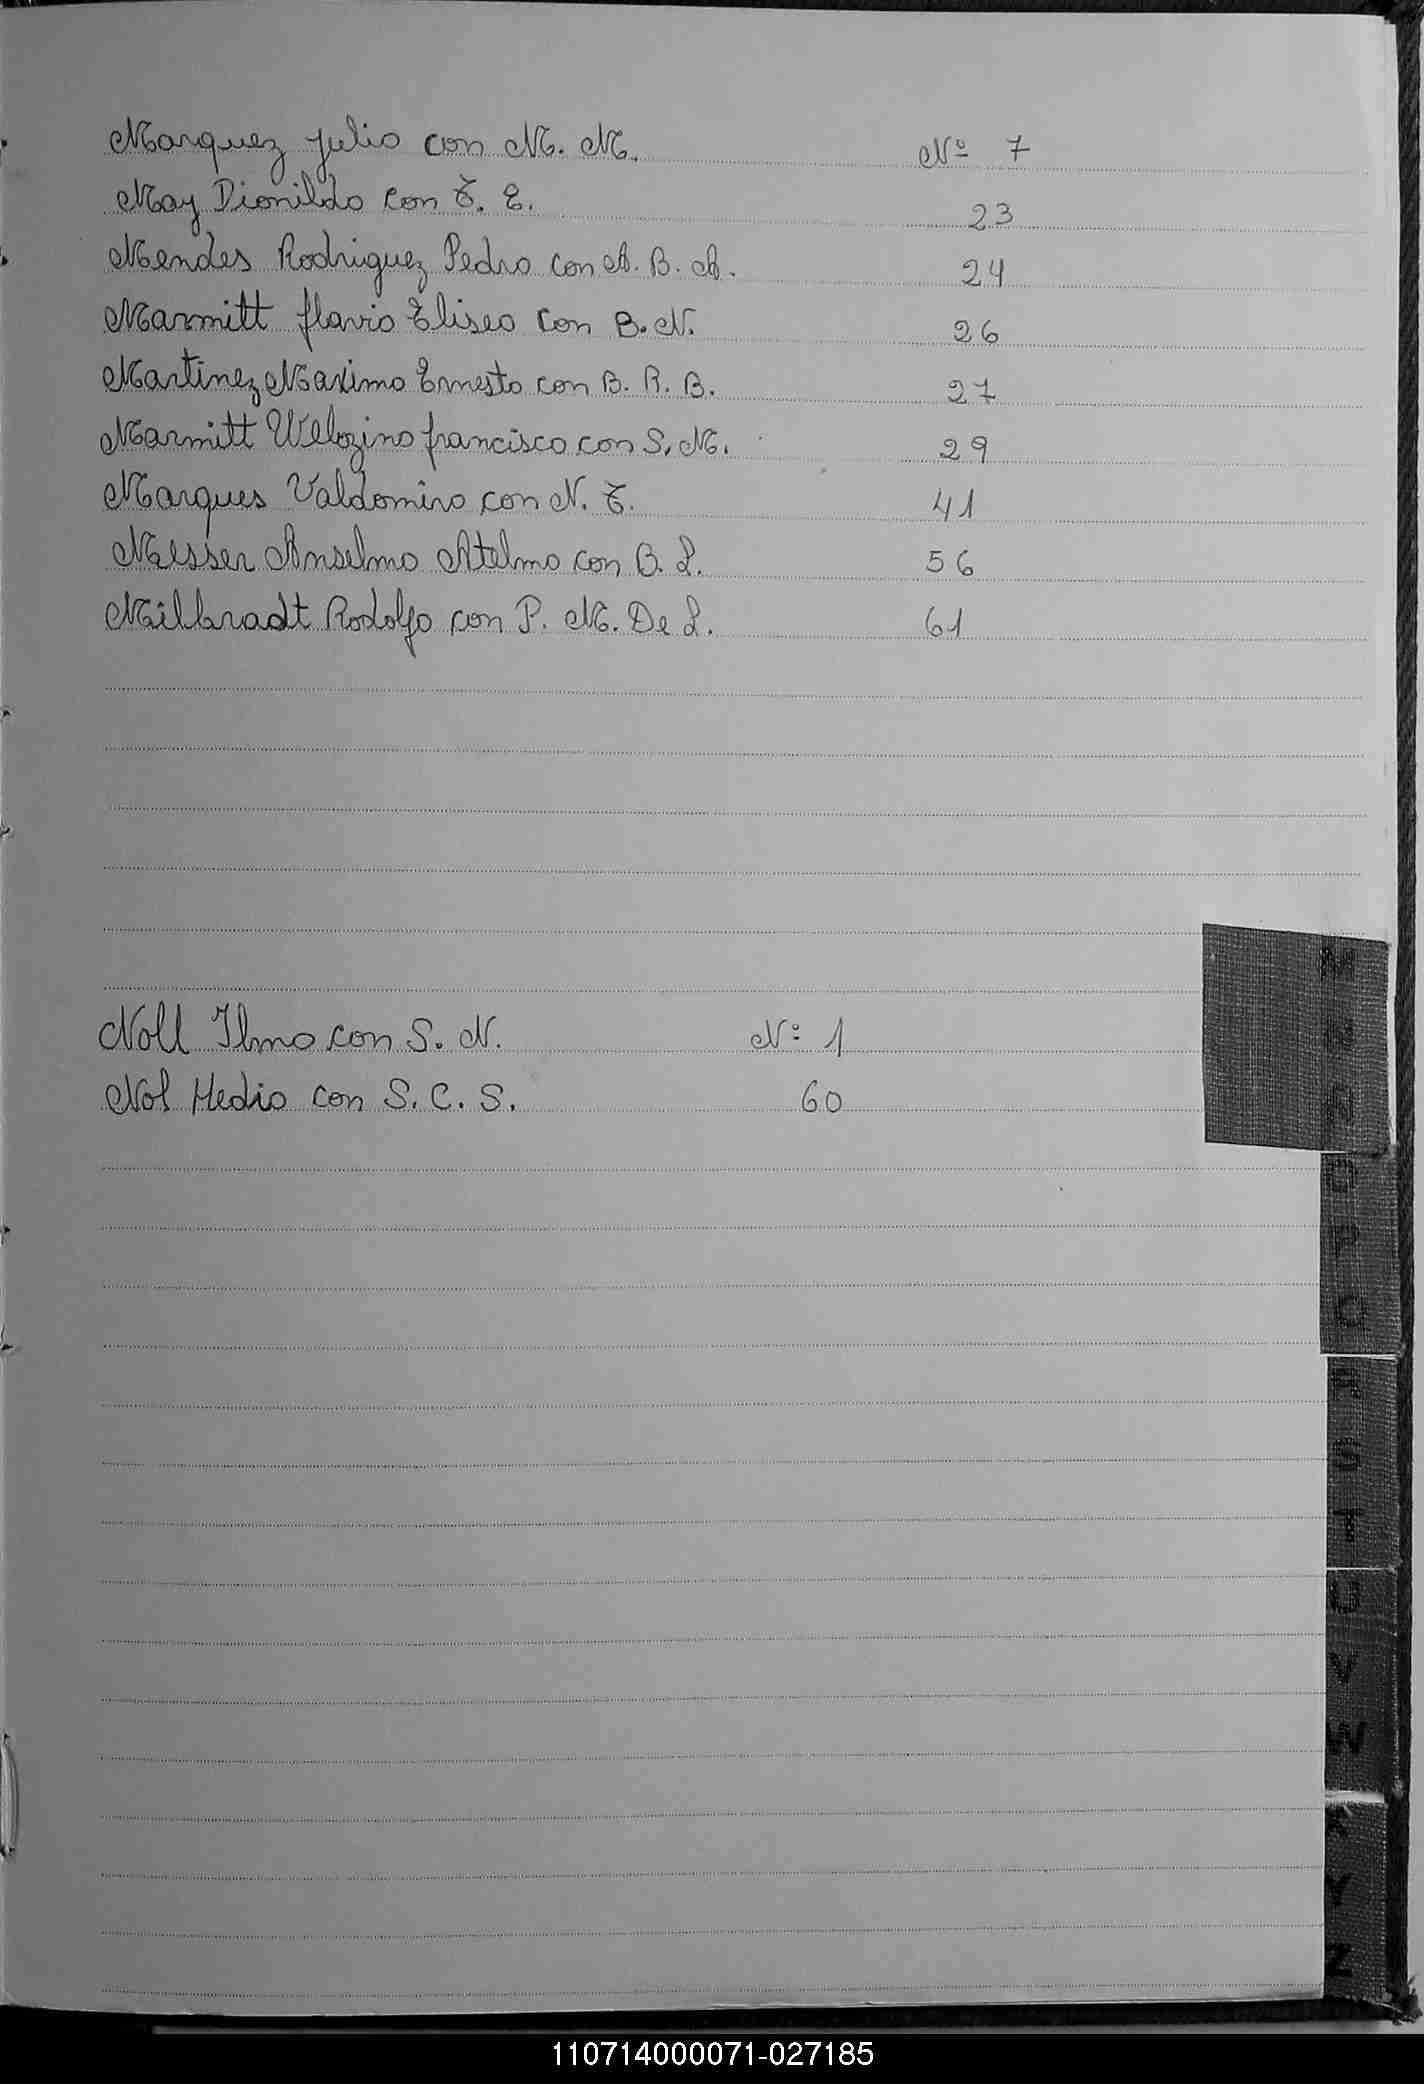 Marquez Julio con M. M. Nº 7
May Dionildo con E. E. 23
Mendes Rodriguez Pedro con A. B. A. 24
Marmitt flavio Eliseo con B. N. 26
Martinez Maximo Ernesto con B. R. B. 27
Marmitt francisco con S. M. 29
Marques Valdomiro con N. 41
Messer Anselmo Atelmo con B. L. 56
Milbradt Rodolfo con P. M. De L. 61
Noll Ilmo con S. N. Nº 1
Nol Hedio con S. C. S. 60
M
N
Ñ
O
P
Q
R
S
T
U
V
W
X
Y
Z
110714000071-027185